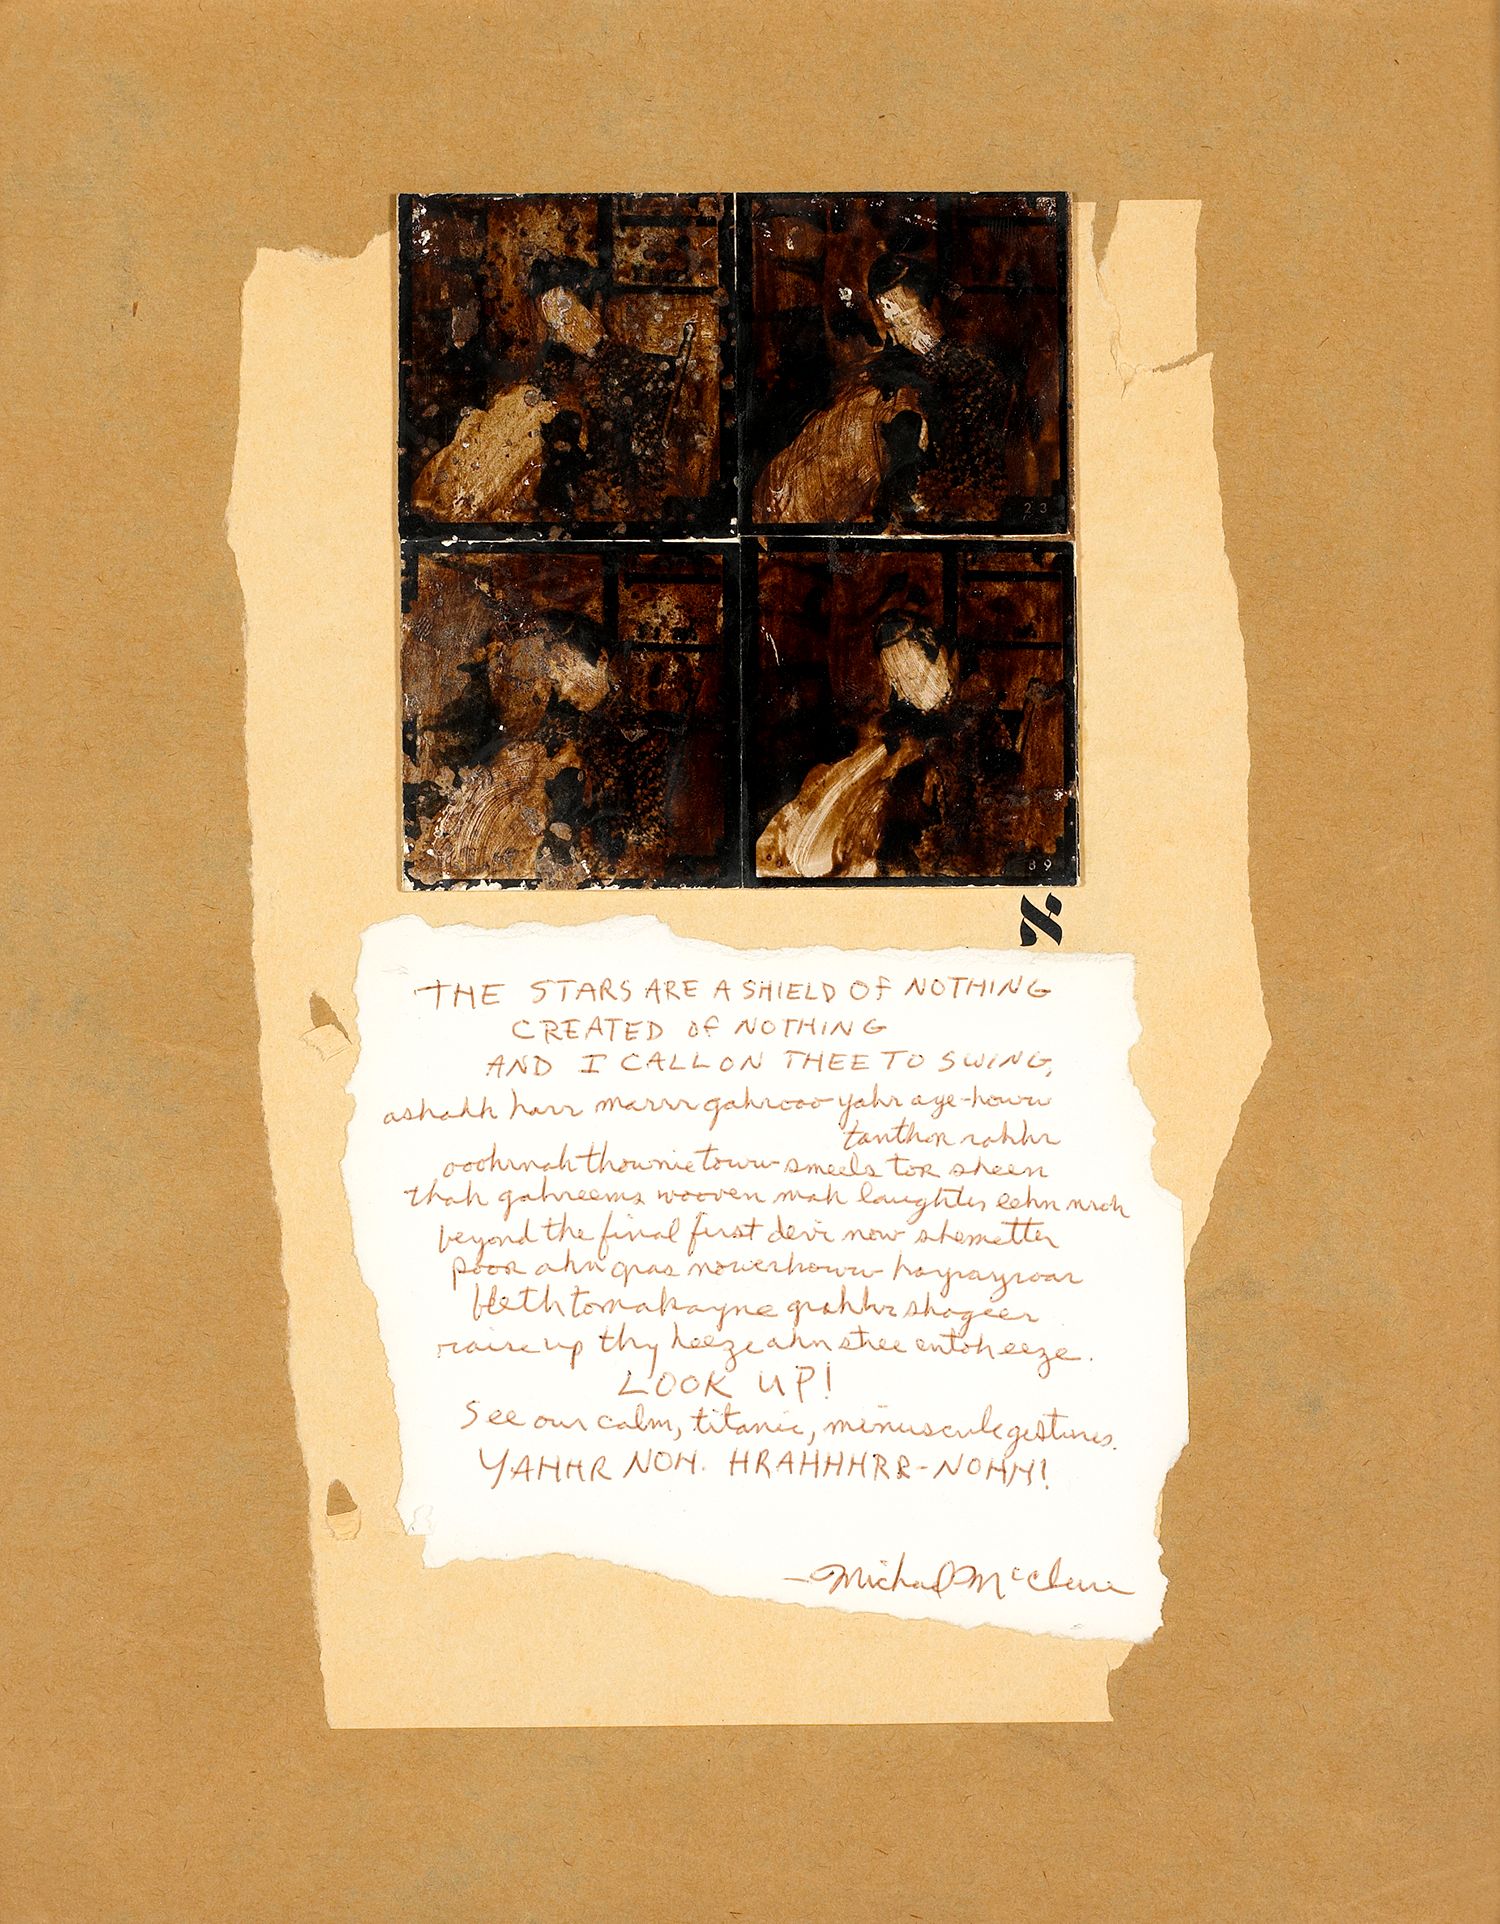 23
89
א
THE STARS ARE A SHIELD OF NOTHING
CREATED OF NOTHING
AND I CALL ON THEE TO SWING,
ashahh harr marrr gahrooo yahr aye-howw
tanthor rahhr
ooohrnah thownie toww smeels tor sheen
thah gahreems wooven mah laughter eehn nroh
beyond the final first devi now shemetter
poor ahn gras nowerhoww hayrayroar
bleth tomakayne grahhr shageer
raise up thy heeze ahn stee entoheeze.
LOOK UP!
See our calm, titanic, minuscule gestures.
YAHHR NOH. HRAHHHRR-NOHH!
— Michael McClure